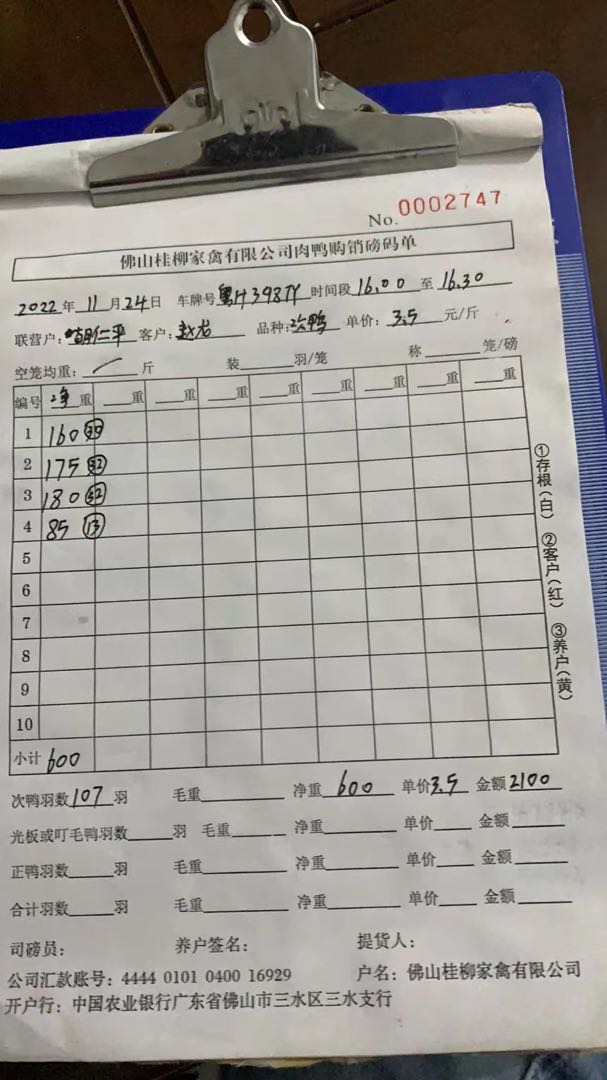 No. 0002747
佛山桂柳家禽有限公司肉鸭购销磅码单
2022年11月24日 车牌号粤H3987Y 时间段16.00至16.30
联营户: 客户:赵龙 品种:次鸭 单价:3.5元/斤
空笼均重:/斤 装羽/笼 称笼/磅
编号 净重 重 重 重 重 重 重 重
1 160
2 175 32
3 180 32
4 85 13
5
6
7
8
9
10
小计 600
①存根(白) ②客户(红) ③养户(黄)
次鸭羽数107羽 毛重 净重600 单价3.5 金额2100
光板或叮毛鸭羽数羽 毛重 净重 单价 金额
正鸭羽数羽 毛重 净重 单价 金额
合计羽数羽 毛重 净重 单价 金额
司磅员: 养户签名: 提货人:
公司汇款账号: 4444 0101 0400 16929 户名: 佛山桂柳家禽有限公司
开户行: 中国农业银行广东省佛山市三水区三水支行